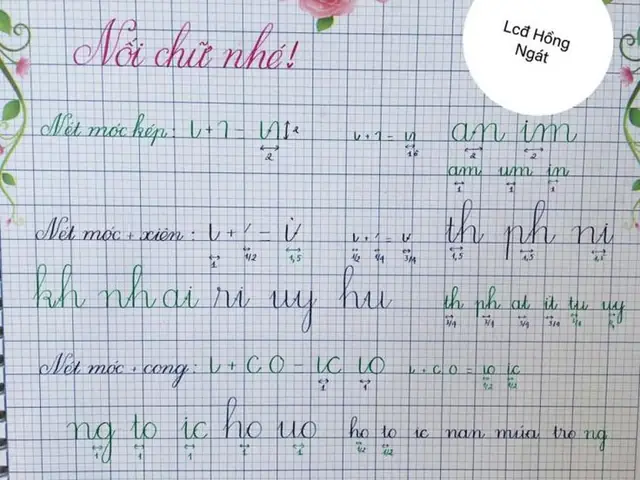 Lcđ Hồng
Ngát
Nối chữ nhé!
Nét móc kép: ɩ + ɿ = 2 2 ɩ + ɿ = 1,5 an im 2 2
am um in 1 1 1
Nét móc + xiên: ɩ + / = 1 1/2 1,5 ɩ + / = 1/2 1/4 3/4 th ph ni 1,5 1,5 1,5
kh nh ai ri uy hu th ph at it tu uy 3/4 3/4 3/4 3/4 3/4 3/4
Nét móc + cong: ɩ + c o = ɩc ɩo 1 1 ɩ + c o = ɩo ɩc 1/2 1/2
ng to ic ho uo ho to ic nan múa tro ng
1 1 1 1 1 1/2 1/2